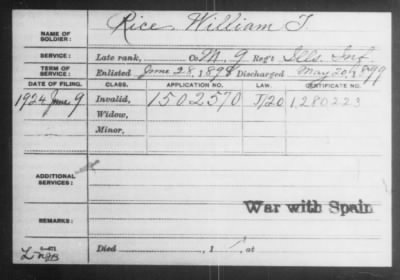 NAME OF SOLDIER: Rice, William T
SERVICE: Late rank, Co M. 9 Reg't Ills. Inf
TERM OF SERVICE: Enlisted June 28, 1898 Discharged May 20, 1899
DATE OF FILING. CLASS. APPLICATION NO. LAW. CERTIFICATE NO.
1924 June 9 Invalid, 1502570 J/20 1280223
Widow,
Minor,
ADDITIONAL SERVICES:
War with Spain
REMARKS:
Died , 1 , at